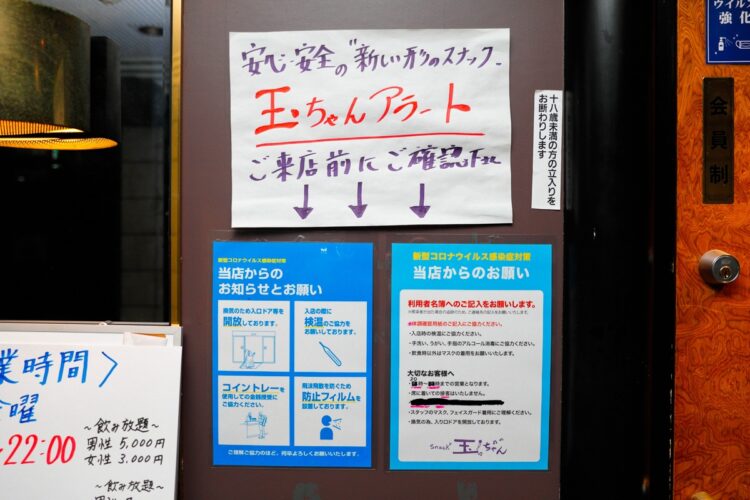 安心・安全の"新しい形のスナック"
玉ちゃんアラート
ご来店前にご確認下さい
十八歳未満の方の立入りを
お断わりします
ウイルス
強化
会員制
新型コロナウイルス感染症対策
当店からの
お知らせとお願い
換気のため入口ドア等を
開放しております。
入店の際に
検温のご協力を
お願いしております。
コイントレーを
使用しての金銭授受に
ご協力ください。
飛沫飛散を防ぐため
防止フィルムを
設置しております。
ご理解ご協力のほど、何卒よろしくお願いいたします。
新型コロナウイルス感染症対策
当店からのお願い
利用者名簿へのご記入をお願いします。
・体調確認用紙のご記入にご協力ください。
・入店時の検温にご協力ください。
・手洗い、うがい、手指のアルコール消毒にご協力ください。
・飲食時以外はマスクの着用をお願いいたします。
大切なお客様へ
20
時までの営業となります。
・席に着いての接客はいたしません。
・スタッフのマスク、フェイスガード着用にご理解ください。
・換気の為、入り口ドアを開放しております。
Snack 玉ちゃん
業時間〉
曜
22:00
〜飲み放題〜
男性 5,000円
女性 3,000円
〜飲み放題〜